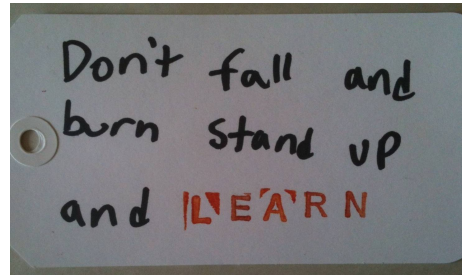 Don't fall and
burn stand up
and LEARN